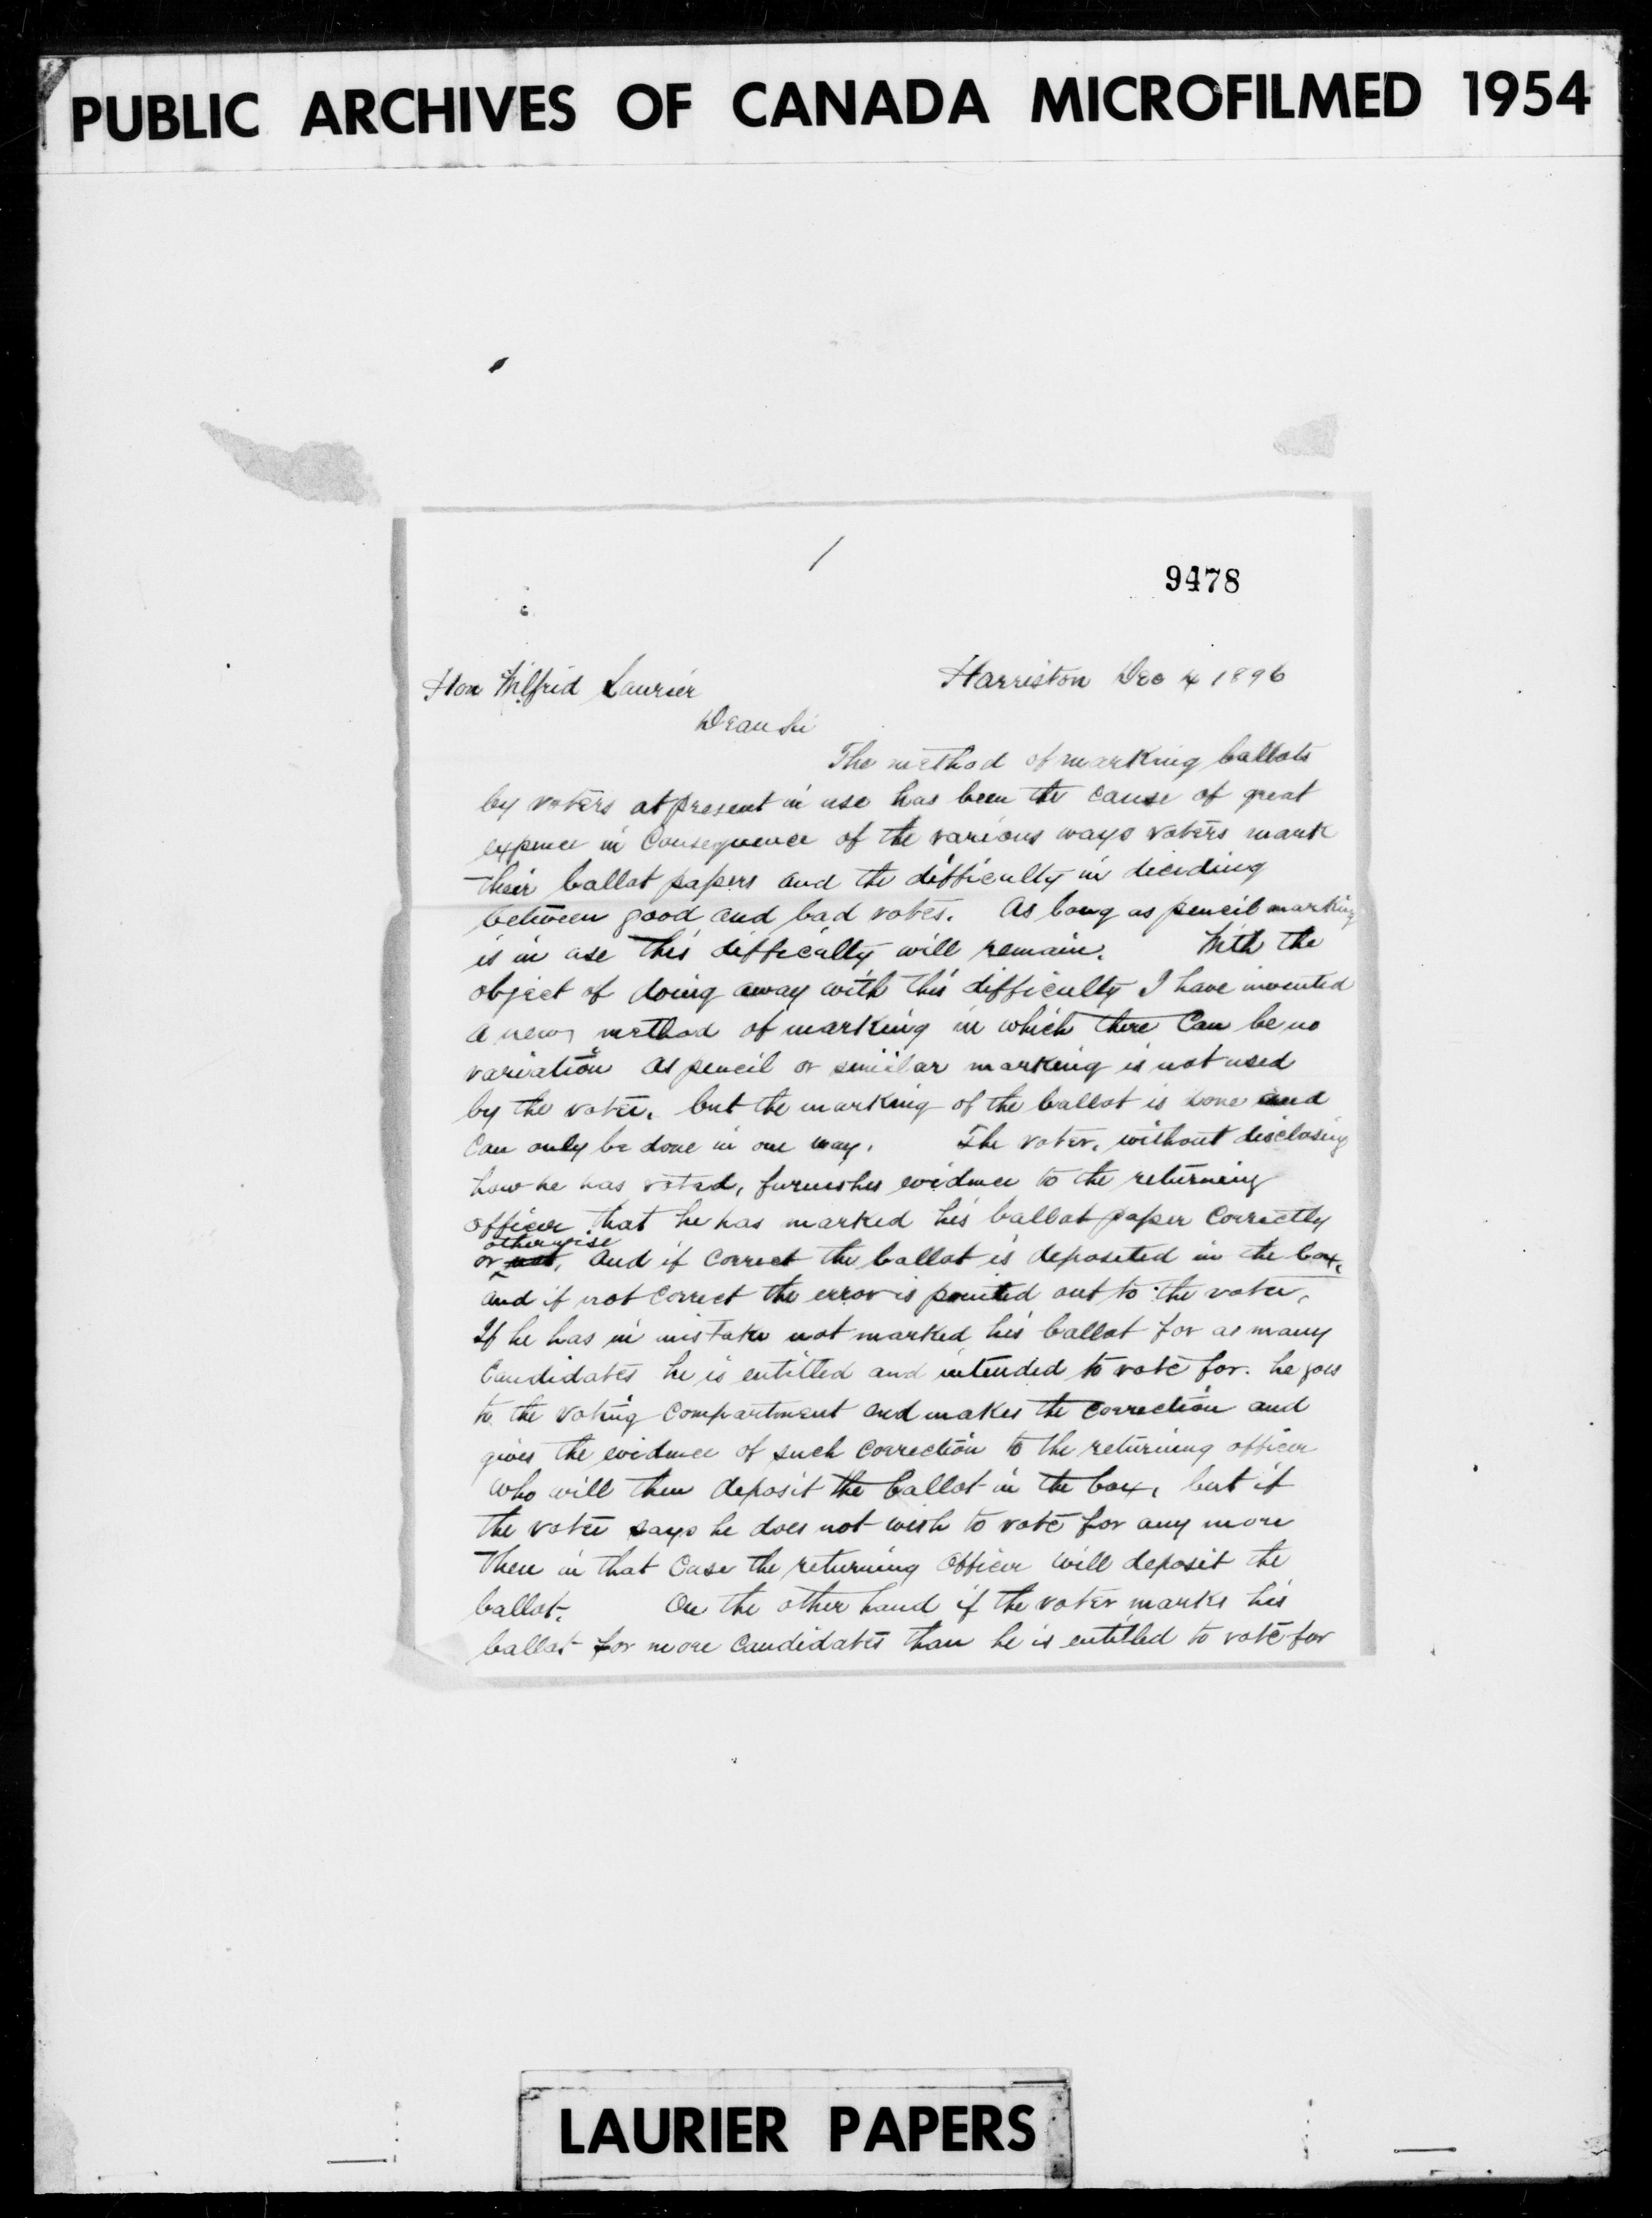 PUBLIC ARCHIVES OF CANADA MICROFILMED 1954
1
9478
Harriston Dec 4 1896
Hon Wilfrid Laurier
Dear Sir
The method of marking ballots
by voters at present in use has been the cause of great
expence in Consequence of the various ways voters mark
their ballot papers and the difficulty in deciding
between good and bad votes. As long as pencil marking
is in use this difficulty will remain. With the
object of doing away with this difficulty I have invented
a new method of marking in which there Can be no
variation as pencil or similar marking is not used
by the voter, but the marking of the ballot is done and
Can only be done in one way. The voter, without disclosing
how he has voted, furnishes evidence to the returning
officer that he has marked his ballot paper Correctly
otherwise
or not, And if Correct the ballot is deposited in the box,
and if not Correct the error is pointed out to the voter,
If he has in mistake not marked his ballot for as many
Candidates he is entitled and intended to vote for. he goes
to the voting Compartment and makes the Correction and
gives the evidence of such Correction to the returning officer
who will then deposit the ballot in the box, but if
the voter says he does not wish to vote for any more
Then in that Case the returning Officer will deposit the
ballot. On the other hand if the voter marks his
ballot for more Candidates than he is entitled to vote for
LAURIER PAPERS